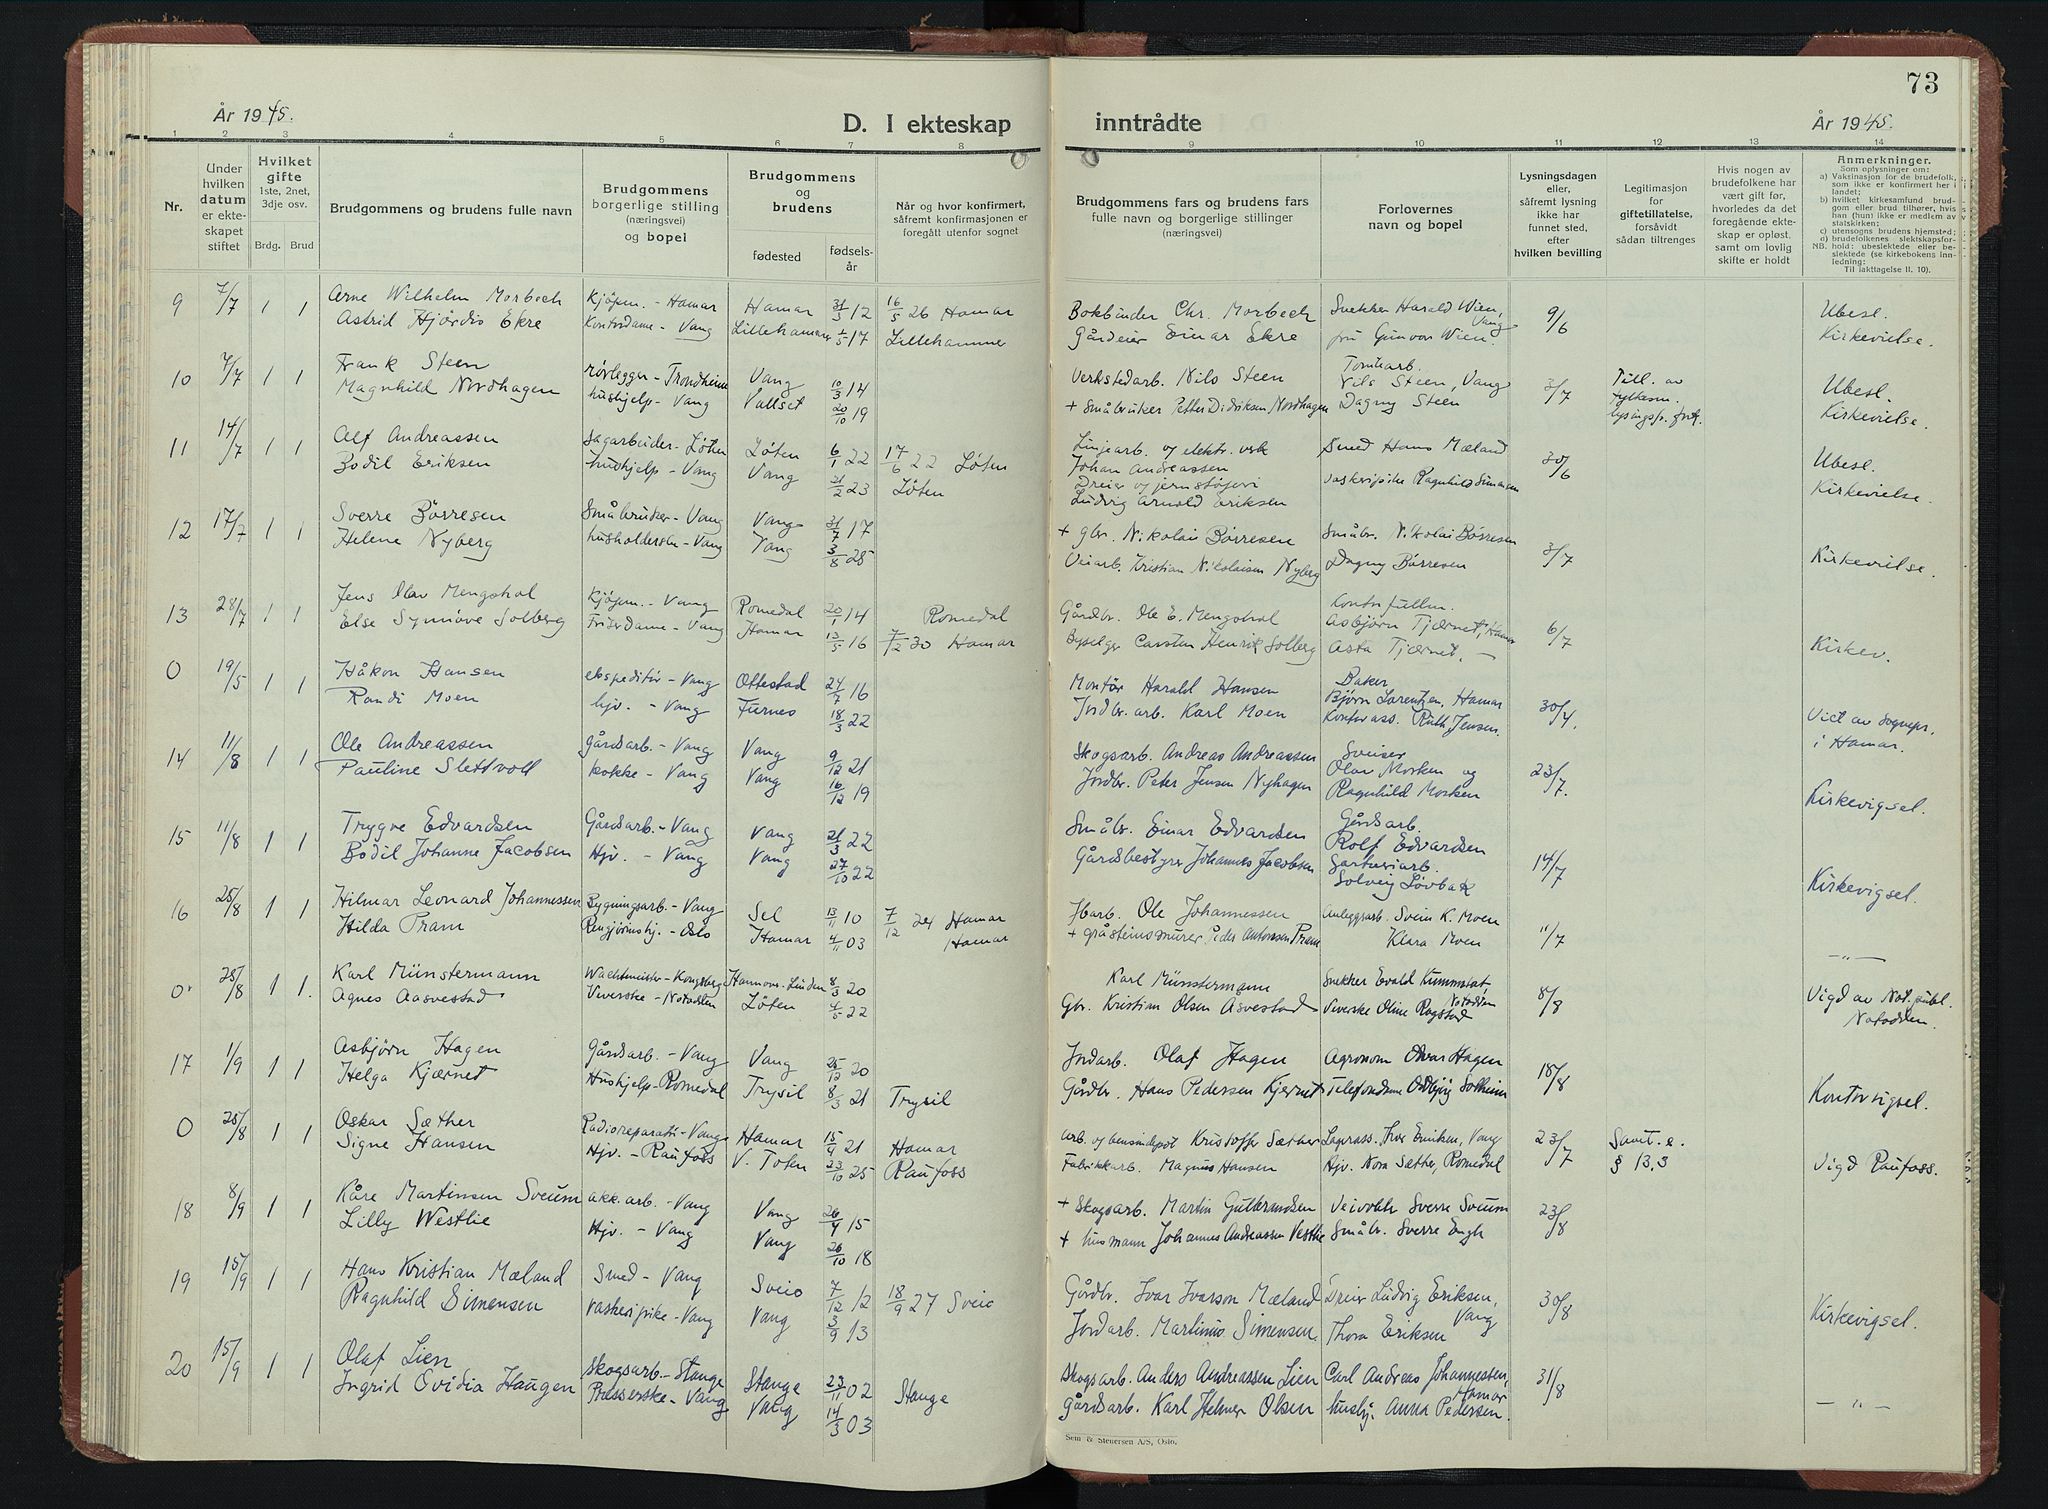 73
År 1945.
D. I ekteskap
inntrådte
År 1945.
1 2 3 4 5 6 7 8 9 10 11 12 13 14
Nr.
Under hvilken datum er ekteskapet stiftet
Hvilket gifte
1ste, 2net, 3dje osv.
Brdg. Brud
Brudgommens og brudens fulle navn
Brudgommens borgerlige stilling (næringsvei) og bopel
Brudgommens og brudens
fødested
fødselsår
Når og hvor konfirmert, såfremt konfirmasjonen er foregått utenfor sognet
Brudgommens fars og brudens fars fulle navn og borgerlige stillinger (næringsvei)
Forlovernes navn og bopel
Lysningsdagen eller, såfremt lysning ikke har funnet sted, efter hvilken bevilling
Legitimasjon for giftetillatelse, forsåvidt sådan tiltrenges
Hvis nogen av brudefolkene har vært gift før, hvorledes da det foregående ekteskap er opløst, samt om lovlig skifte er holdt
Anmerkninger.
Som oplysninger om:
a) Vaksinasjon for de brudefolk, som ikke er konfirmert her i landet;
b) hvilket kirkesamfund brudgom eller brud tilhører, hvis han (hun) ikke er medlem av statskirken;
c) utensogns brudens hjemsted;
d) brudefolkenes slektskapsforhold: ubeslektede eller beslektede (se kirkebokens innledning:
NB. Til iakttagelse II. 10).
9 7/7 1 1 Arne Wilhelm Morbech Kjøpm. - Hamar Hamar 31/3 12 16/5 26 Hamar Bokbinder Chr. Morbech Snekker Harald Wien, Vang 9/6 Ubesl.
Astrid Hjørdis Ekre Kontordame - Vang Lillehammer 1/5 17 Lillehammer Gårdeier Einar Ekre fru Gunvor Wien. Kirkevielse.
10 7/7 1 1 Frank Steen rørlegger - Trondheim Vang 10/3 14 Verkstedarb. Nils Steen Nils Steen, Vang 3/7 Till. av fylkesm. Ubesl.
Magnhild Nordhagen hushjelp - Vang Vallset 20/10 19 + Småbruker Petter Didriksen Nordhagen Dagny Steen Kirkevielse.
11 14/7 1 1 Alf Andreassen Sagarbeider - Løten Løten 6/1 22 17/6 22 Løten Linjearb. og elektr. verk Smed Hans Mæland 30/6 Ubesl.
Bodil Eriksen hushjelp - Vang Vang 21/2 23 Løten Johan Andreassen vaskeripike Ragnhild Simensen Kirkevielse.
Dreier og jernstøperi
Ludvig Arnold Eriksen
12 17/7 1 1 Sverre Børresen Småbruker - Vang Vang 31/7 17 + gbr. Nikolai Børresen Småbr. Nikolai Børresen 3/7 Kirkevielse.
Helene Nyberg husholderske - Vang Vang 3/8 25 Veiarb. Kristian Nikolaisen Nyberg Dagny Børresen
13 28/7 1 1 Jens Olav Mengshol Kjøpm. - Vang Romedal 20/1 14 Romedal Gårdbr. Ole E. Mengshol Kontorfullm. Asbjørn Tjærnet, Hamar 6/7 Kirkev.
Else Synnøve Solberg Friserdame - Vang Hamar 13/5 16 7/12 30 Hamar Byselger Carsten Henrik Solberg Asta Tjærnet, -
0 19/5 1 1 Håkon Hansen ekspeditør - Vang Ottestad 24/7 16 Montør Harald Hansen Baker Bjørn Lorentzen, Hamar 30/4. Viet av sognepr.
Randi Moen hjv. - Vang Furnes 18/3 22 Jordbr. arb. Karl Moen Kontorass. Ruth Jensen. i Hamar.
14 11/8 1 1 Ole Andreassen Gårdsarb. - Vang Vang 9/12 21 Skogsarb. Andreas Andreassen Sveiser Olav Morken og 23/7. Kirkevigsel.
Pauline Slettvoll kokke - Vang Vang 16/12 19 Jordbr. Peter Jensen Nyhagen Ragnhild Morken
15 11/8 1 1 Trygve Edvardsen Gårdsarb. - Vang Vang 21/3 22 Småbr. Einar Edvardsen Gårdsarb. Rolf Edvardsen 14/7 Kirkevigsel.
Bodil Johanne Jacobsen Hjv. - Vang Vang 27/10 22 Gårdsbestyrer Johannes Jacobsen Solveig Løvbak
16 25/8 1 1 Hilmar Leonard Johannessen Bygningsarb. - Vang Sel 13/11 10 7/12 24 Hamar Jbarb. Ole Johannessen Anleggsarb. Svein K. Moen 11/7 -"-
Hilda Pram Rengjøringshj. - Oslo Hamar 4/11 03 Hamar + gråsteinsmurer Peder Antonsen Pram Klara Moen
0 25/8 1 1. Karl Münstermann Wachtmeister - Kongsberg Hannover-Linden 8/3 20 Karl Münstermann Snekker Evald Kummstat, Notodden 8/8 Vigd av Not. publ.
Agnes Aasvestad Veverske - Notodden Løten 4/5 22 Gbr. Kristian Olsen Asvestad Veverske Oline Ragstad Notodden.
17 1/9 1 1 Asbjørn Hagen Gårdsarb. - Vang Vang 25/12 20 Jordarb. Olaf Hagen Agronom Olvar Hagen 18/8 Kontorvigsel.
Helga Kjærnet Hushjelp - Romedal Trysil 8/3 21 Trysil Gårdbr. Hans Pedersen Kjernet Telefondame Oddbjørg Solheim
0 25/8 1 1 Oskar Sæther Radioreparatør - Vang Hamar 15/9 21 Hamar arb. og bensindepot Kristoffer Sæther Lagerass. Thor Eriksen, Vang 23/7 Samt. e. § 13,3 Vigd Raufoss.
Signe Hansen Hjv. - Raufoss V. Toten 23/10 25 Raufoss Fabrikkarb. Magnus Hansen Hjv. Nora Sæther, Romedal
18 8/9 1 1 Kåre Martinsen Sveum akk. arb. - Vang Vang 26/4 15 + Skogsarb. Martin Gulbrandsen Veivokter Sverre Sveum 23/8
Lilly Westlie Hjv. - Vang Vang 26/10 18 + husmann Johannes Andreassen Vestlie Småbr. Sverre Engh
19 15/9 1 1 Hans Kristian Mæland Smed - Vang Sveio 7/12 12 18/9 27 Sveio Gårdbr. Ivar Ivarson Mæland Dreier Ludvig Eriksen, Vang 30/8 Kirkevigsel.
Ragnhild Simensen vaskeripike - Vang Vang 3/9 13 Jordarb. Martinus Simensen. Thora Eriksen
20 15/9 1 1 Olaf Lien Skogsarb. - Stange Stange 23/11 02 Stange Skogsarb. Anders Andreassen Lien Carl Andreas Johannessen, Hamar 31/8 -"-
Ingrid Ovidia Haugen Presserske - Vang Vang 14/3 03 Gårdsarb. Karl Helmer Olsen husbj. Anna Pedersen.
Sem & Stenersen A/S, Oslo.